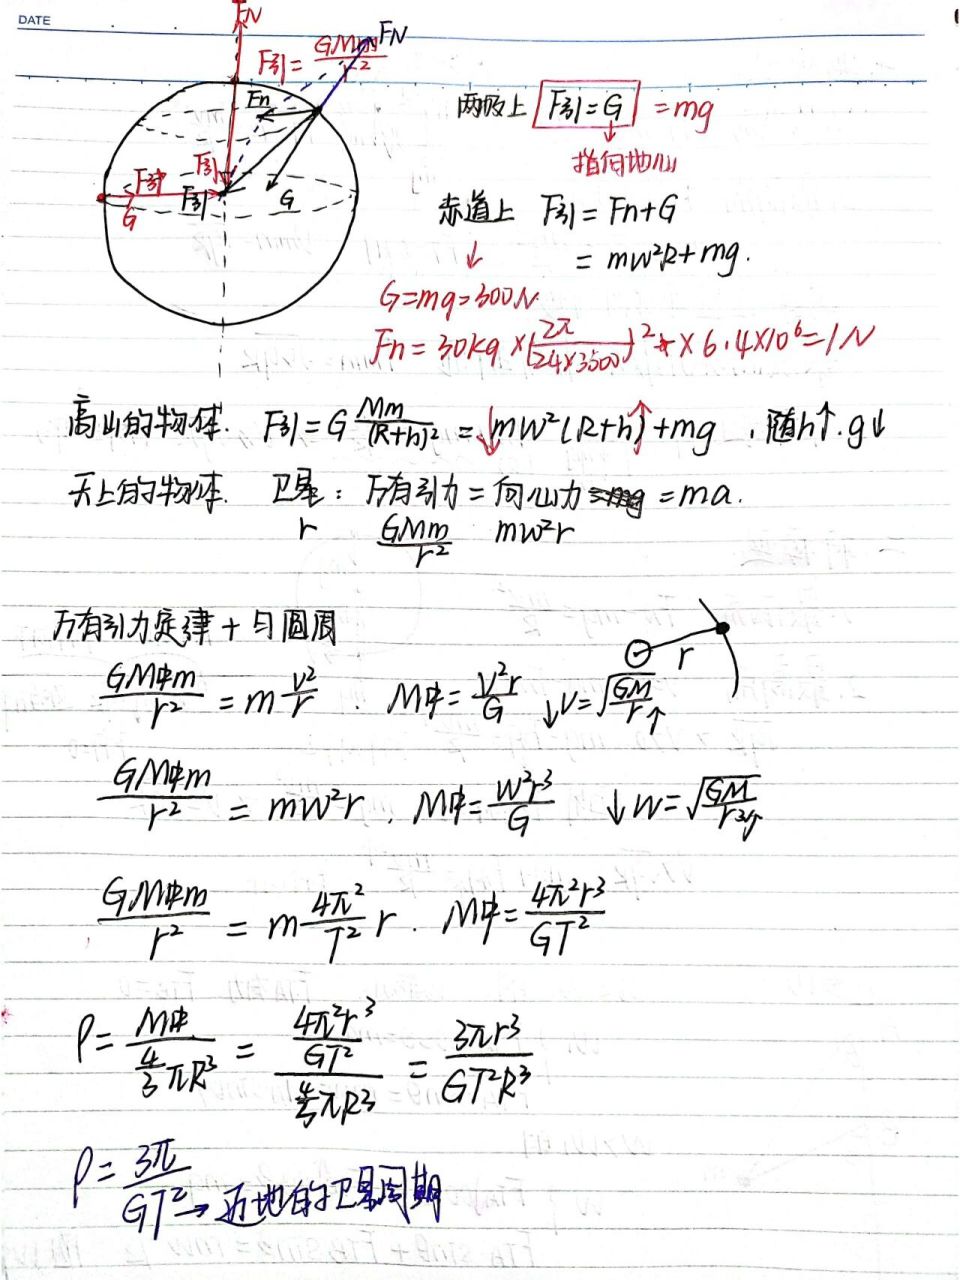 DATE
FN
F引 = GMm/r²
FN
Fn
F引
F引
F引
G
G
两极上 F引=G =mg
指向地心
赤道上 F引=Fn+G
= mw²R+mg.
G=mg=300N
Fn=30kg×(2π/24×3500)²××6.4×10⁶=1N
高山的物体. F引=G Mm/(R+h)² = ↓mw²(R+h)↑+mg . 随h↑. g↓
天上的物体. 卫星: 万有引力=向心力 =ma.
r GMm/r² mw²r
万有引力定律+匀圆周
r
GM中m/r² = m v²/r . M中= v²r/G ↓v=√GM/r↑
GM中m/r² = mw²r. M中= w²r³/G ↓w=√GM/r³↑
GM中m/r² = m 4π²/T² r . M中= 4π²r³/GT²
ρ= M中/(4/3 πR³) = (4π²r³/GT²)/(4/3 πR³) = 3πr³/GT²R³
ρ= 3π/GT² → 近地的卫星周期